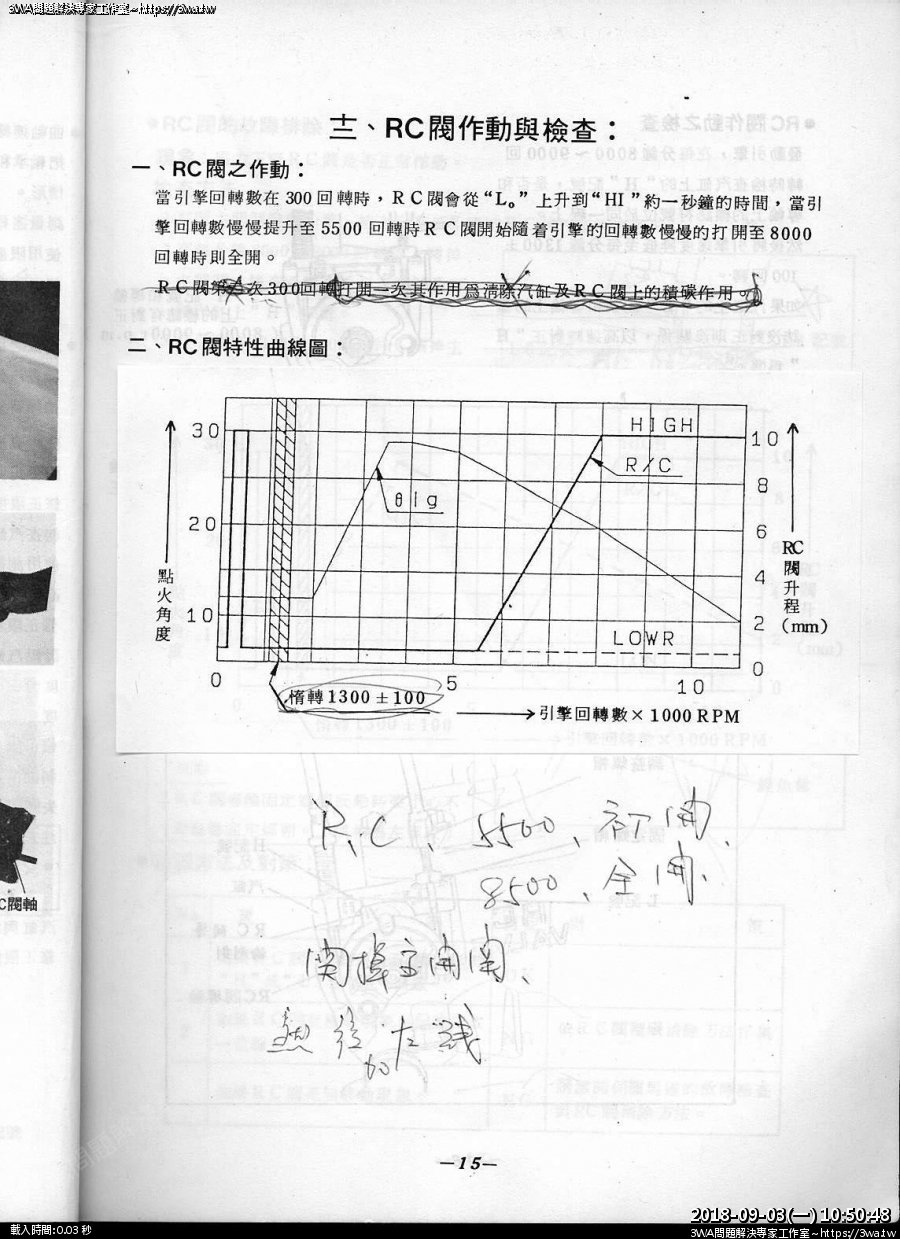 3WA問題解決專家工作室~https://3wa.tw
士、RC閥作動與檢查：
一、RC閥之作動：
當引擎回轉數在 300 回轉時，RC閥會從“L。”上升到“HI”約一秒鐘的時間，當引
擎回轉數慢慢提升至 5500 回轉時RC閥開始隨着引擎的回轉數慢慢的打開至8000
回轉時則全開。
RC閥第一次300回轉打開一次其作用爲清除汽缸及RC閥上的積碳作用。
二、RC閥特性曲線圖：
30
20
10
點火角度
HIGH
R/C
θig
LOWR
10
8
6
4
2
0
RC閥升程(mm)
0
5
10
惰轉1300±100
引擎回轉數×1000RPM
R、C、5500、訂開、
8500、全開、
関掉主開関、
C閥軸
—15—
2018-09-03(一) 10:50:48
載入時間:0.03 秒
3WA問題解決專家工作室~https://3wa.tw